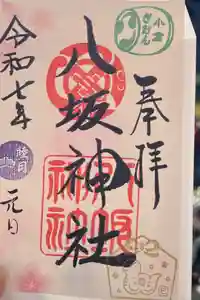 奉拝
八坂神社
令和七年
元日
八坂
神社